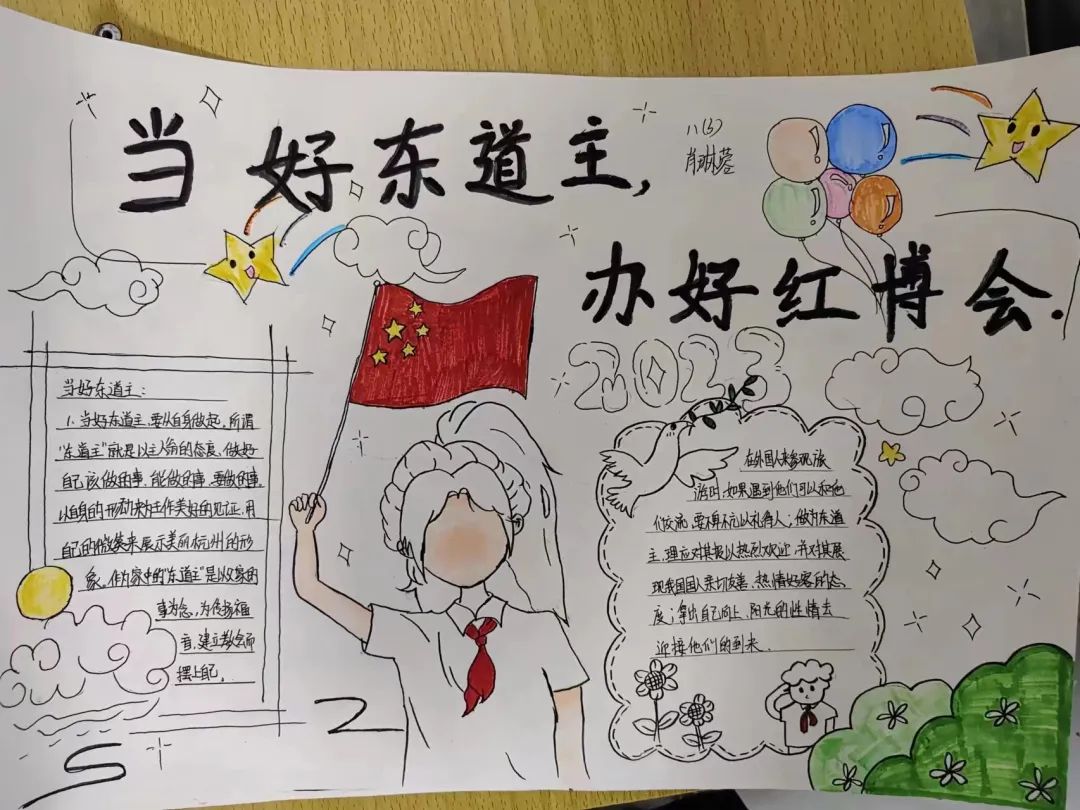 当好东道主,
八(3)
肖琳
办好红博会.
2023
当好东道主:
1.当好东道主,要从自身做起,所谓
"东道主"就是以主人翁的态度,做好
自己该做的事,能做的事,要做的事
以自身的形动来为工作美好的见证,用
自己的微笑来展示美丽杭州的形
象,作为家中的"东道主"是以家的
事为念,为传扬福
音,建立教会而
摆上自己。
在外国人来参观,旅
游时,如果遇到他们可以和他
们交流,要不卑不亢以礼待人;做为东道
主,理应对其报以热烈欢迎,并对其展
现我国国人亲切友善、热情好客的态
度;拿出自己向上、阳光的性情去
迎接他们的到来.
5
2